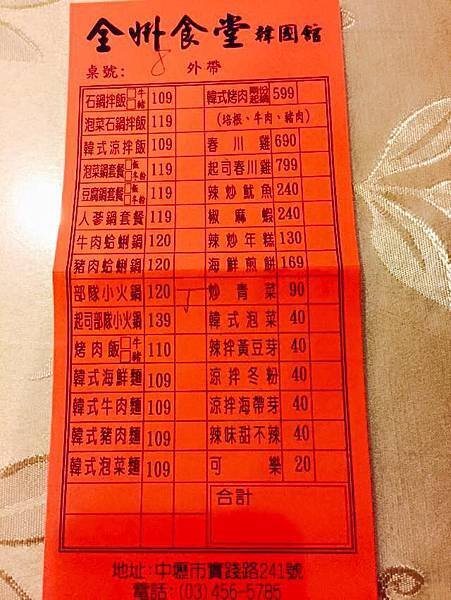 全州食堂 韓國館
桌號: 8 外帶
石鍋拌飯 □牛 □豬 109
泡菜石鍋拌飯 119
韓式涼拌飯 109
泡菜鍋套餐 □飯 □冬粉 119
豆腐鍋套餐 □飯 □冬粉 119
人蔘鍋套餐 119
牛肉蛤蜊鍋 120
豬肉蛤蜊鍋 120
部隊小火鍋 120
起司部隊小火鍋 139
烤肉飯 □牛 □豬 110
韓式海鮮麵 109
韓式牛肉麵 109
韓式豬肉麵 109
韓式泡菜麵 109
韓式烤肉 兩份起鍋 599
(培根、牛肉、豬肉)
春川雞 690
起司春川雞 799
辣炒魷魚 240
椒麻蝦 240
辣炒年糕 130
海鮮煎餅 169
炒青菜 90
韓式泡菜 40
辣拌黃豆芽 40
涼拌冬粉 40
涼拌海帶芽 40
辣味甜不辣 40
可樂 20
合計
地址:中壢市實踐路241號
電話:(03)456-5785